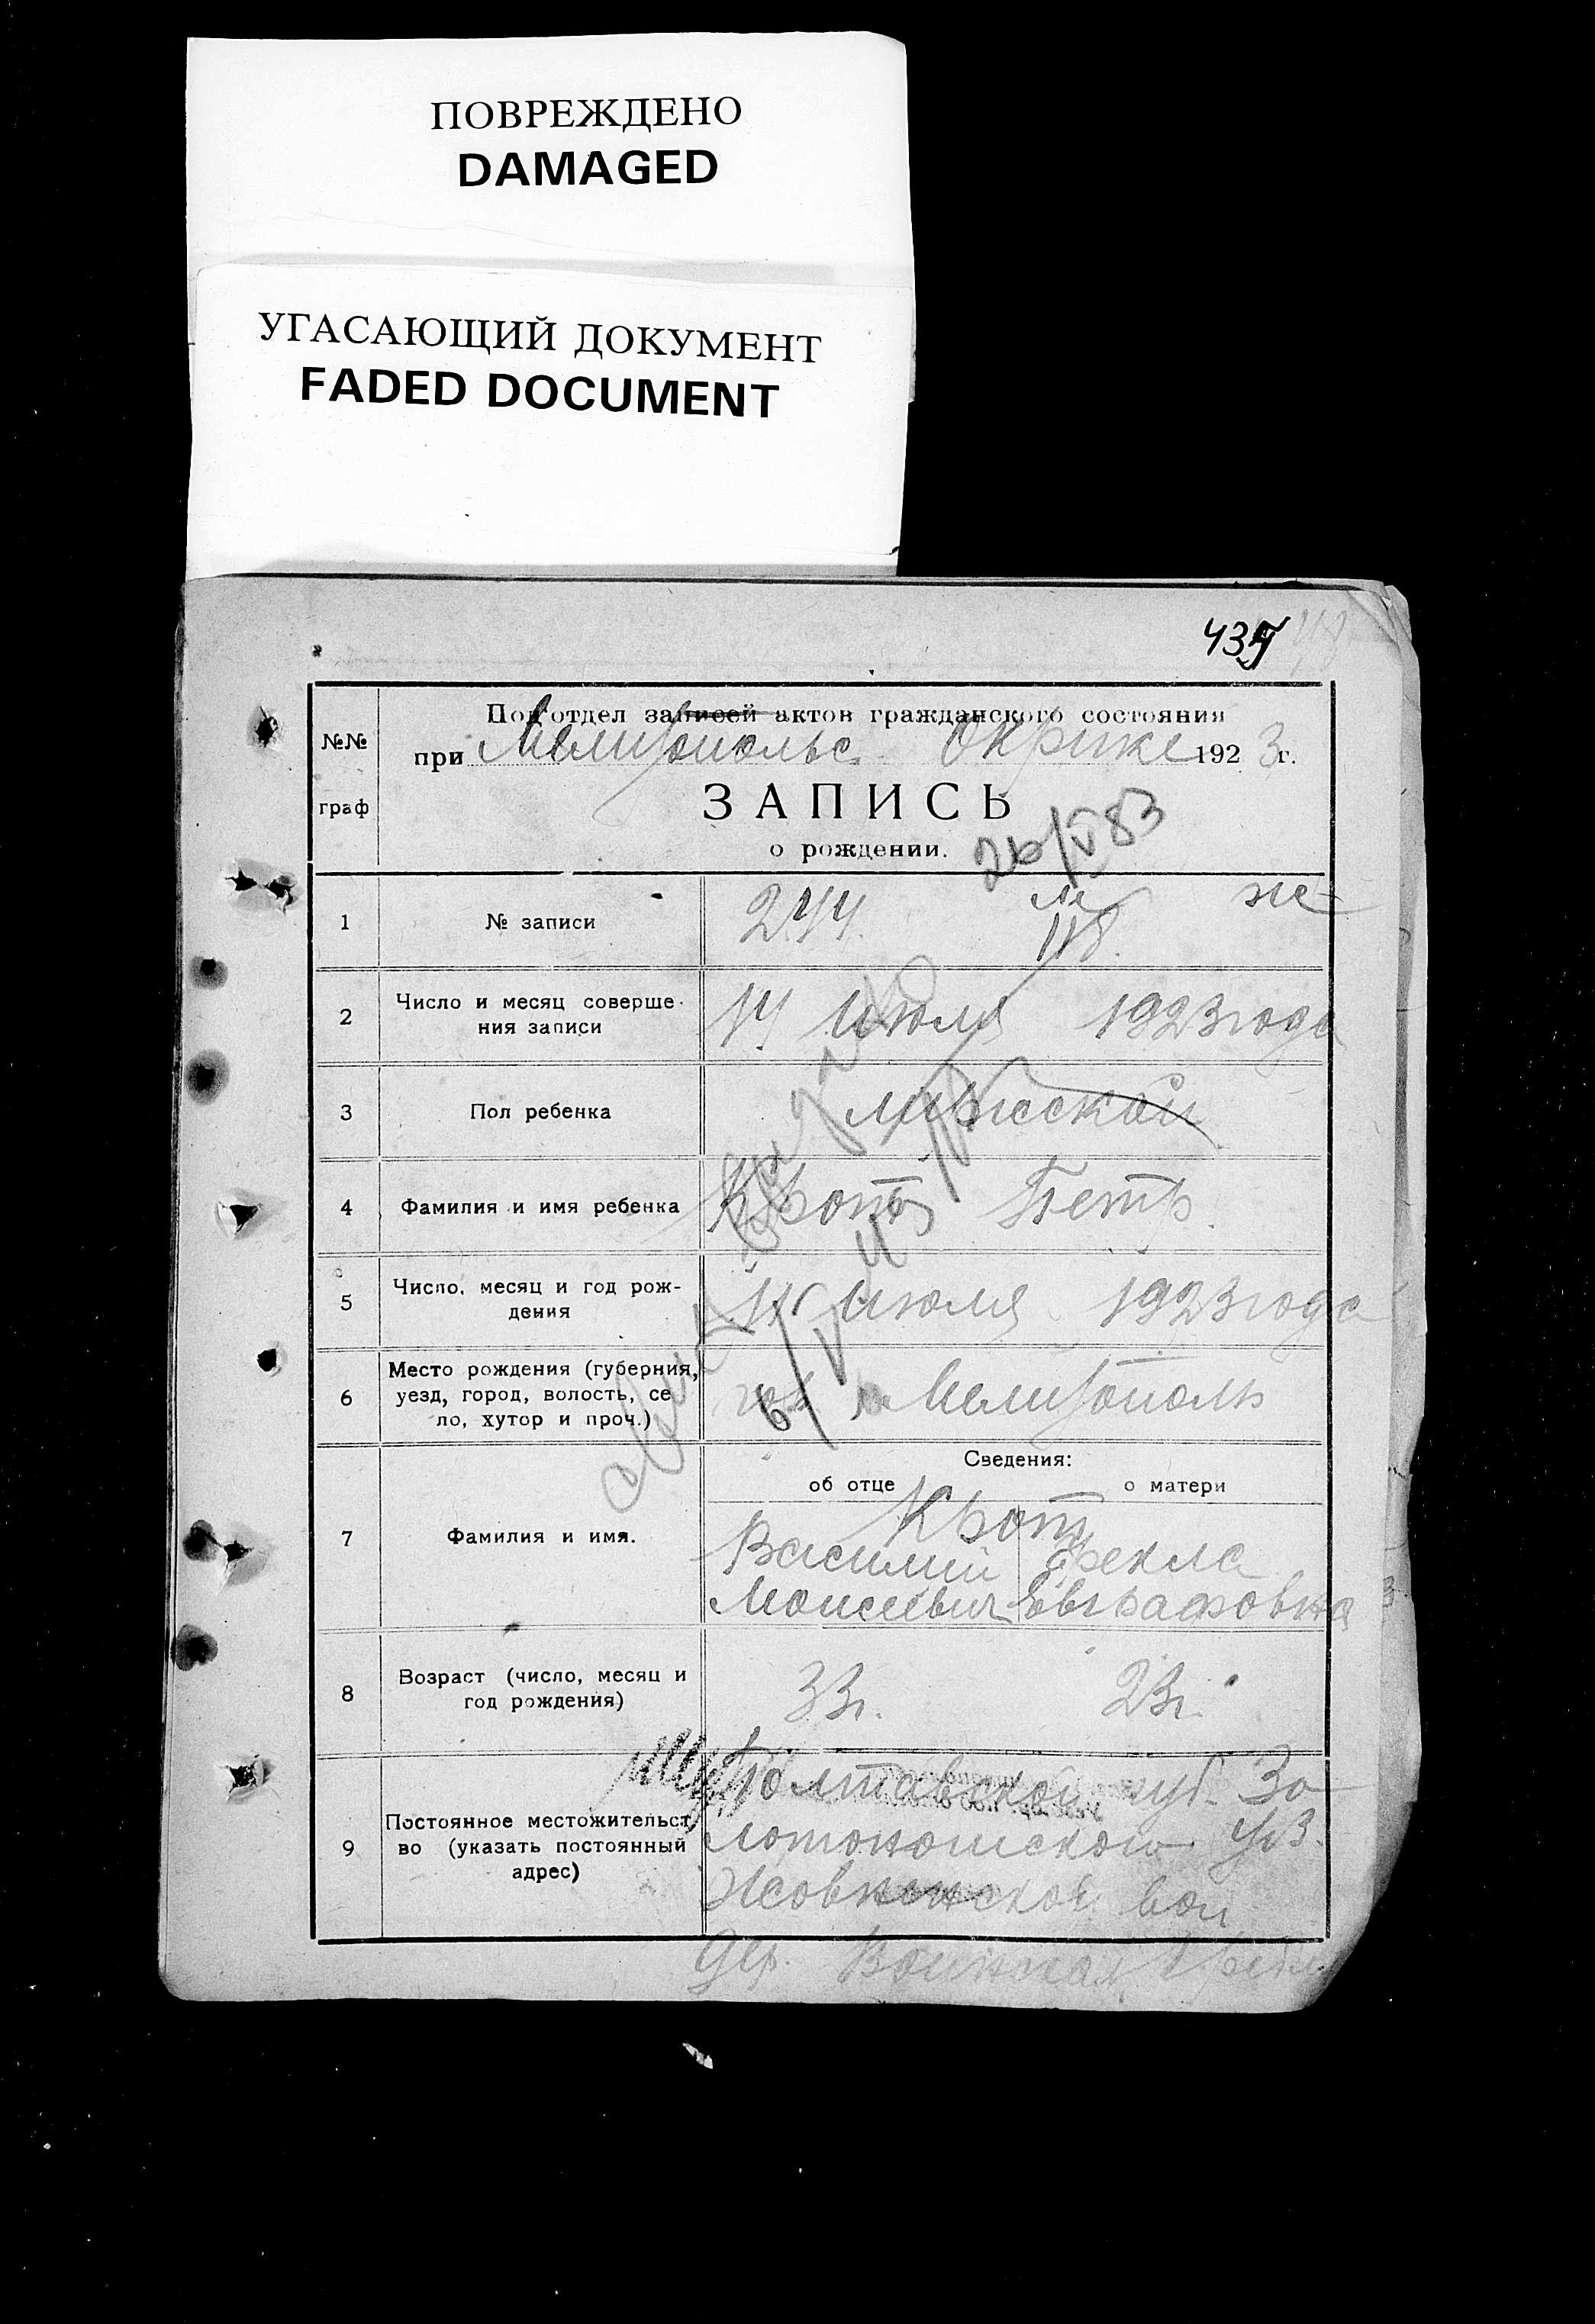 ПОВРЕЖДЕНО
DAMAGED
УГАСАЮЩИЙ ДОКУМЕНТ
FADED DOCUMENT
435
№№
граф
Под'отдел записей актов гражданского состояния
при Мелитопольс. 1923г.
ЗАПИСЬ
о рождении.
26/V 83
1 № записи 244. м ж
118.
2 Число и месяц соверше-
ния записи
14 июля 1923 года
3 Пол ребенка мужской
4 Фамилия и имя ребенка Крот Петр.
5 Число, месяц и год рож-
дения
июля 1923 года
6 Место рождения (губерния,
уезд, город, волость, се
ло, хутор и проч.)
Мелитополь
Сведения:
об отце о матери
7 Фамилия и имя.
Крот
Василий Фекла
Моисеевич Евграфовна
8 Возраст (число, месяц и
год рождения)
33г. 23г.
9 Постоянное местожительст
во (указать постоянный
адрес)
Полтавской губ. Зо
лотоношского уз.
вол
дер.